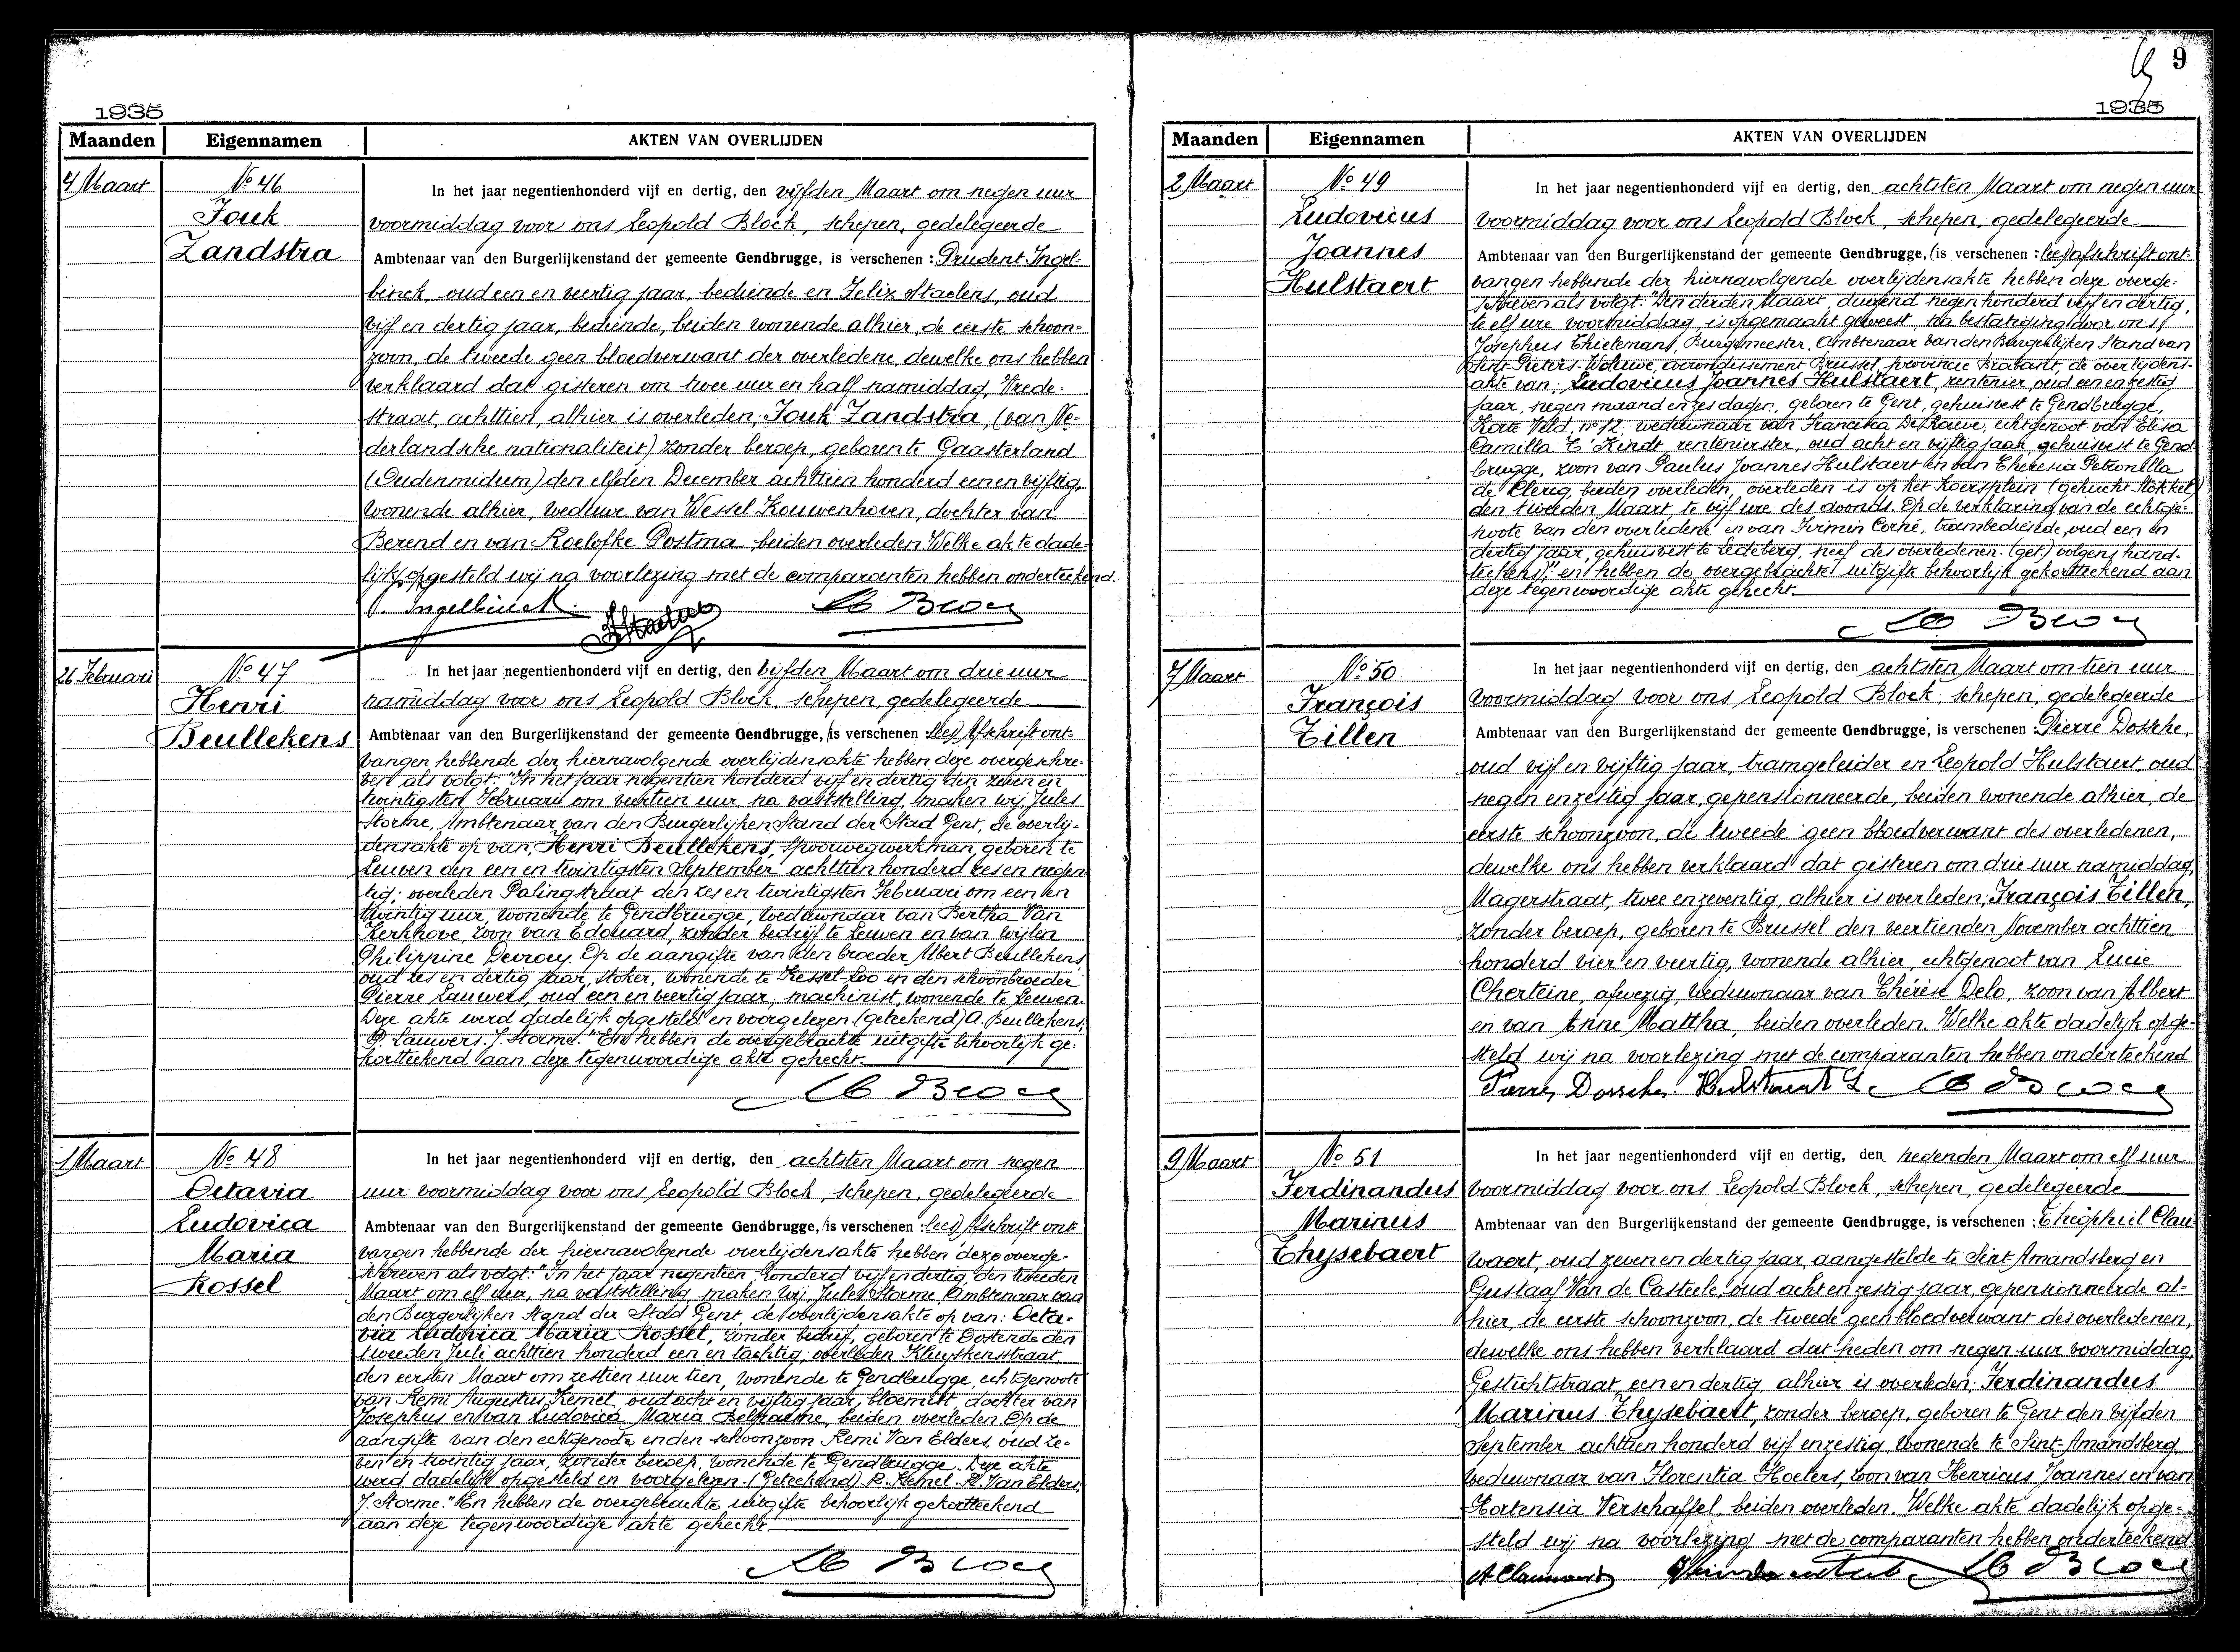 1935
Maanden Eigennamen AKTEN VAN OVERLIJDEN
4 Maart
Nº 46
Jouk
Zandstra
In het jaar negentienhonderd vijf en dertig, den vijfden Maart om negen uur
voormiddag voor ons Leopold Block, schepen, gedelegeerde
Ambtenaar van den Burgerlijkenstand der gemeente Gendbrugge, is verschenen : Prudent Ingel-
binck, oud een en veertig jaar, bediende en Felix Staelens, oud
vijf en dertig jaar, bediende, beiden wonende alhier, de eerste schoon-
zoon, de tweede geen bloedverwant der overledene, dewelke ons hebben
verklaard dat gisteren om twee uur en half namiddag, Vrede-
straat, achttien, alhier is overleden; Jouk Zandstra, (van Ne-
derlandsche nationaliteit) zonder beroep, geboren te Gaasterland
(Oudenmidum) den elfden December achttien honderd een en vijftig,
wonende alhier, weduwe van Wessel Kouwenhoven, dochter van
Berend en van Roelofke Postma, beiden overleden. Welke akte dade-
lijk opgesteld wij na voorlezing met de comparanten hebben onderteekend.
P. Ingelbinck. FStaelens Le Block
26 Februari
Nº 47
Henri
Beullekens
In het jaar negentienhonderd vijf en dertig, den vijfden Maart om drie uur
namiddag voor ons Leopold Block, schepen, gedelegeerde
Ambtenaar van den Burgerlijkenstand der gemeente Gendbrugge, (is verschenen : lees) Afschrift ont-
vangen hebbende der hiernavolgende overlijdensakte hebben deze overgeschre-
ven als volgt: "In het jaar negentien honderd vijf en dertig den zeven en
twintigsten Februari om veertien uur, na vaststelling, maken wij, Jules
Storme, Ambtenaar van den Burgerlijken Stand der Stad Gent, de overlij-
densakte op van; Henri Beullekens, spoorwegwerkman, geboren te
Leuven den een en twintigsten September achttien honderd zes en negen-
tig; overleden Palingstraat den zes en twintigsten Februari om een en
twintig uur, wonende te Gendbrugge, weduwnaar van Bertha Van
Kerkhove, zoon van Edouard, zonder bedrijf te Leuven en van wijlen
Philippine Devroey. Op de aangifte van den broeder Albert Beullekens,
oud zes en dertig jaar, stoker, wonende te Kessel-Loo en den schoonbroeder
Pierre Lauwers, oud een en veertig jaar, machinist, wonende te Leuven.
Deze akte werd dadelijk opgesteld en voorgelezen. (geteekend) A. Beullekens,
P. Lauwers. J. Storme." En hebben de overgebrachte uitgifte behoorlijk ge-
kortteekend aan deze tegenwoordige akte gehecht.
Le Block
1 Maart
Nº 48
Octavia
Ludovica
Maria
Rossel
In het jaar negentienhonderd vijf en dertig, den achtsten Maart om negen
uur voormiddag voor ons Leopold Block, schepen, gedelegeerde
Ambtenaar van den Burgerlijkenstand der gemeente Gendbrugge, (is verschenen : lees) Afschrift ont-
vangen hebbende der hiernavolgende overlijdensakte hebben deze overge-
schreven als volgt: "In het jaar negentien honderd vijf en dertig, den tweeden
Maart om elf uur, na vaststelling, maken wij, Jules Storme, Ambtenaar van
den Burgerlijken Stand der Stad Gent, de overlijdensakte op van: Octa-
via Ludovica Maria Rossel, zonder bedrijf, geboren te Oostende den
tweeden Juli achttien honderd een en tachtig; overleden Kluyskensstraat
den eersten Maart om zestien uur tien, wonende te Gendbrugge, echtgenoote
van Remi Augustus Kemel, oud acht en vijftig jaar, bloemist, dochter van
Josephus en van Ludovica Maria, beiden overleden. Op de
aangifte van den echtgenoot en den schoonzoon Remi Van Elders, oud ze-
ven en twintig jaar, zonder beroep, wonende te Gendbrugge. Deze akte
werd dadelijk opgesteld en voorgelezen. (Geteekend) R. Kemel. R. Van Elders,
J. Storme." En hebben de overgebrachte uitgifte behoorlijk gekortteekend
aan deze tegenwoordige akte gehecht.
Le Block
9
1935
Maanden Eigennamen AKTEN VAN OVERLIJDEN
2 Maart
Nº 49
Ludovicus
Joannes
Hulstaert
In het jaar negentienhonderd vijf en dertig, den achtsten Maart om negen uur
voormiddag voor ons Leopold Block, schepen, gedelegeerde
Ambtenaar van den Burgerlijkenstand der gemeente Gendbrugge, (is verschenen : lees) Afschrift ont-
vangen hebbende der hiernavolgende overlijdensakte hebben deze overge-
schreven als volgt: "Den derden Maart, duizend negen honderd vijf en dertig,
te elf ure voormiddag, is opgemaakt geweest, na bestatiging door ons,
Josephus Thielemans, Burgemeester, Ambtenaar van den Burgerlijken Stand van
Sint-Pieters-Woluwe, arrondissement Brussel, provincie Brabant, de overlijdens-
akte van; Ludovicus Joannes Hulstaert, rentenier, oud een en zestig
jaar, negen maand en zes dagen, geboren te Gent, gehuisvest te Gendbrugge,
Korte Veld, nº 12, weduwnaar van Francisca De Rauve, echtgenoot van Elisa
Camilla T'Kindt, rentenierster, oud acht en vijftig jaar, gehuisvest te Gend-
brugge, zoon van Paulus Joannes Hulstaert en van Theresia Petronilla
de Clercq, beiden overleden, overleden is op het Koersplein (gehucht Stokkel)
den tweeden Maart, te vijf ure des avonds. Op de verklaring van de echtge-
noote van den overledene en van Firmin Corné, trambediende, oud een en
dertig jaar, gehuisvest te Ledeberg, neef des overledenen. (get.) volgens hand-
teekens)" en hebben de overgebrachte uitgifte behoorlijk gekortteekend aan
deze tegenwoordige akte gehecht.
Le Block
7 Maart
Nº 50
François
Tillen
In het jaar negentienhonderd vijf en dertig, den achtsten Maart om tien uur
voormiddag voor ons Leopold Block, schepen, gedelegeerde
Ambtenaar van den Burgerlijkenstand der gemeente Gendbrugge, is verschenen : Pierre Dossche,
oud vijf en vijftig jaar, tramgeleider en Leopold Hulstaert, oud
negen en zestig jaar, gepensionneerde, beiden wonende alhier, de
eerste schoonzoon, de tweede geen bloedverwant des overledenen,
dewelke ons hebben verklaard dat gisteren om drie uur namiddag,
Magerstraat, twee en zeventig, alhier is overleden; François Tillen,
zonder beroep, geboren te Brussel den veertienden November achttien
honderd vier en veertig, wonende alhier, echtgenoot van Lucie
Cherteine, afwezig, weduwnaar van Thérèse Delo, zoon van Albert
en van Anne Mattha, beiden overleden. Welke akte dadelijk opge-
steld wij na voorlezing met de comparanten hebben onderteekend
Pierre Dossche. Hulstaert L. Le Block
9 Maart
Nº 51
Ferdinandus
Marinus
Thysebaert
In het jaar negentienhonderd vijf en dertig, den negenden Maart om elf uur
voormiddag voor ons Leopold Block, schepen, gedelegeerde
Ambtenaar van den Burgerlijkenstand der gemeente Gendbrugge, is verschenen : Théophiel Clau-
waert, oud zeven en dertig jaar, aangestelde te Sint-Amandsberg en
Gustaaf Van de Casteele, oud acht en zestig jaar, gepensionneerde al-
hier, de eerste schoonzoon, de tweede geen bloedverwant des overledenen,
dewelke ons hebben verklaard dat heden om negen uur voormiddag,
Gestichtstraat, een en dertig, alhier is overleden; Ferdinandus
Marinus Thysebaert, zonder beroep, geboren te Gent den vijfden
September achttien honderd vijf en zestig, wonende te Sint-Amandsberg,
weduwnaar van Florentia Hoelers, zoon van Henricus Joannes en van
Hortensia Verschaffel, beiden overleden. Welke akte dadelijk opge-
steld wij na voorlezing met de comparanten hebben onderteekend
Clauwaert Le Block